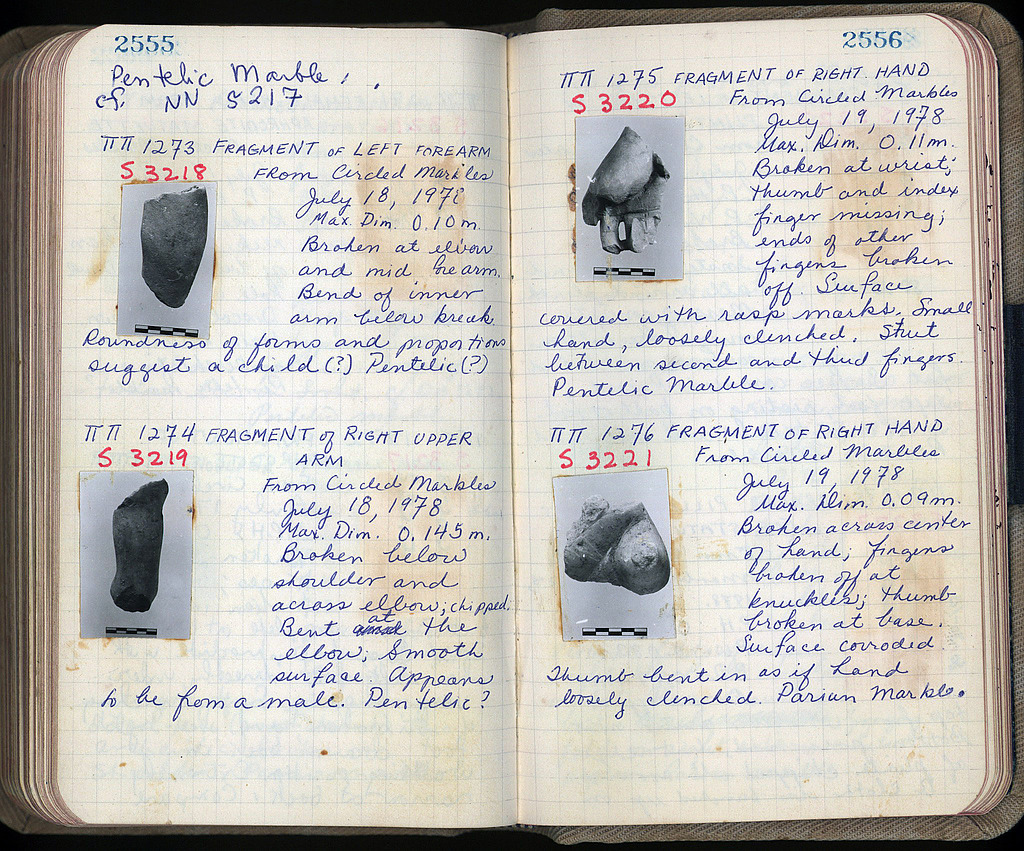 2555
Pentelic Marble.
cf. NN S 217
ΠΠ 1273 FRAGMENT OF LEFT FOREARM
S 3218
From Circled Marbles
July 18, 1978
Max. Dim. 0.10 m.
Broken at elbow
and mid forearm.
Bend of inner
arm below break.
Roundness of forms and proportions
suggest a child (?) Pentelic (?)
ΠΠ 1274 FRAGMENT of RIGHT UPPER
S 3219
ARM
From Circled Marbles
July 18, 1978
Max. Dim. 0.145 m.
Broken below
shoulder and
across elbow; chipped.
Bent at the
elbow; Smooth
surface. Appears
to be from a male. Pentelic?
2556
ΠΠ 1275 FRAGMENT OF RIGHT HAND
S 3220
From Circled Marbles
July 19, 1978
Max. Dim. 0.11 m.
Broken at wrist;
thumb and index
finger missing;
ends of other
fingers broken
off. Surface
covered with rasp marks. Small
hand, loosely clenched. Strut
between second and third fingers.
Pentelic Marble.
ΠΠ 1276 FRAGMENT OF RIGHT HAND
S 3221
From Circled Marbles
July 19, 1978
Max. Dim. 0.09 m.
Broken across center
of hand; fingers
broken off at
knuckles; thumb
broken at base.
Surface corroded.
Thumb bent in as if hand
loosely clenched. Parian Marble.